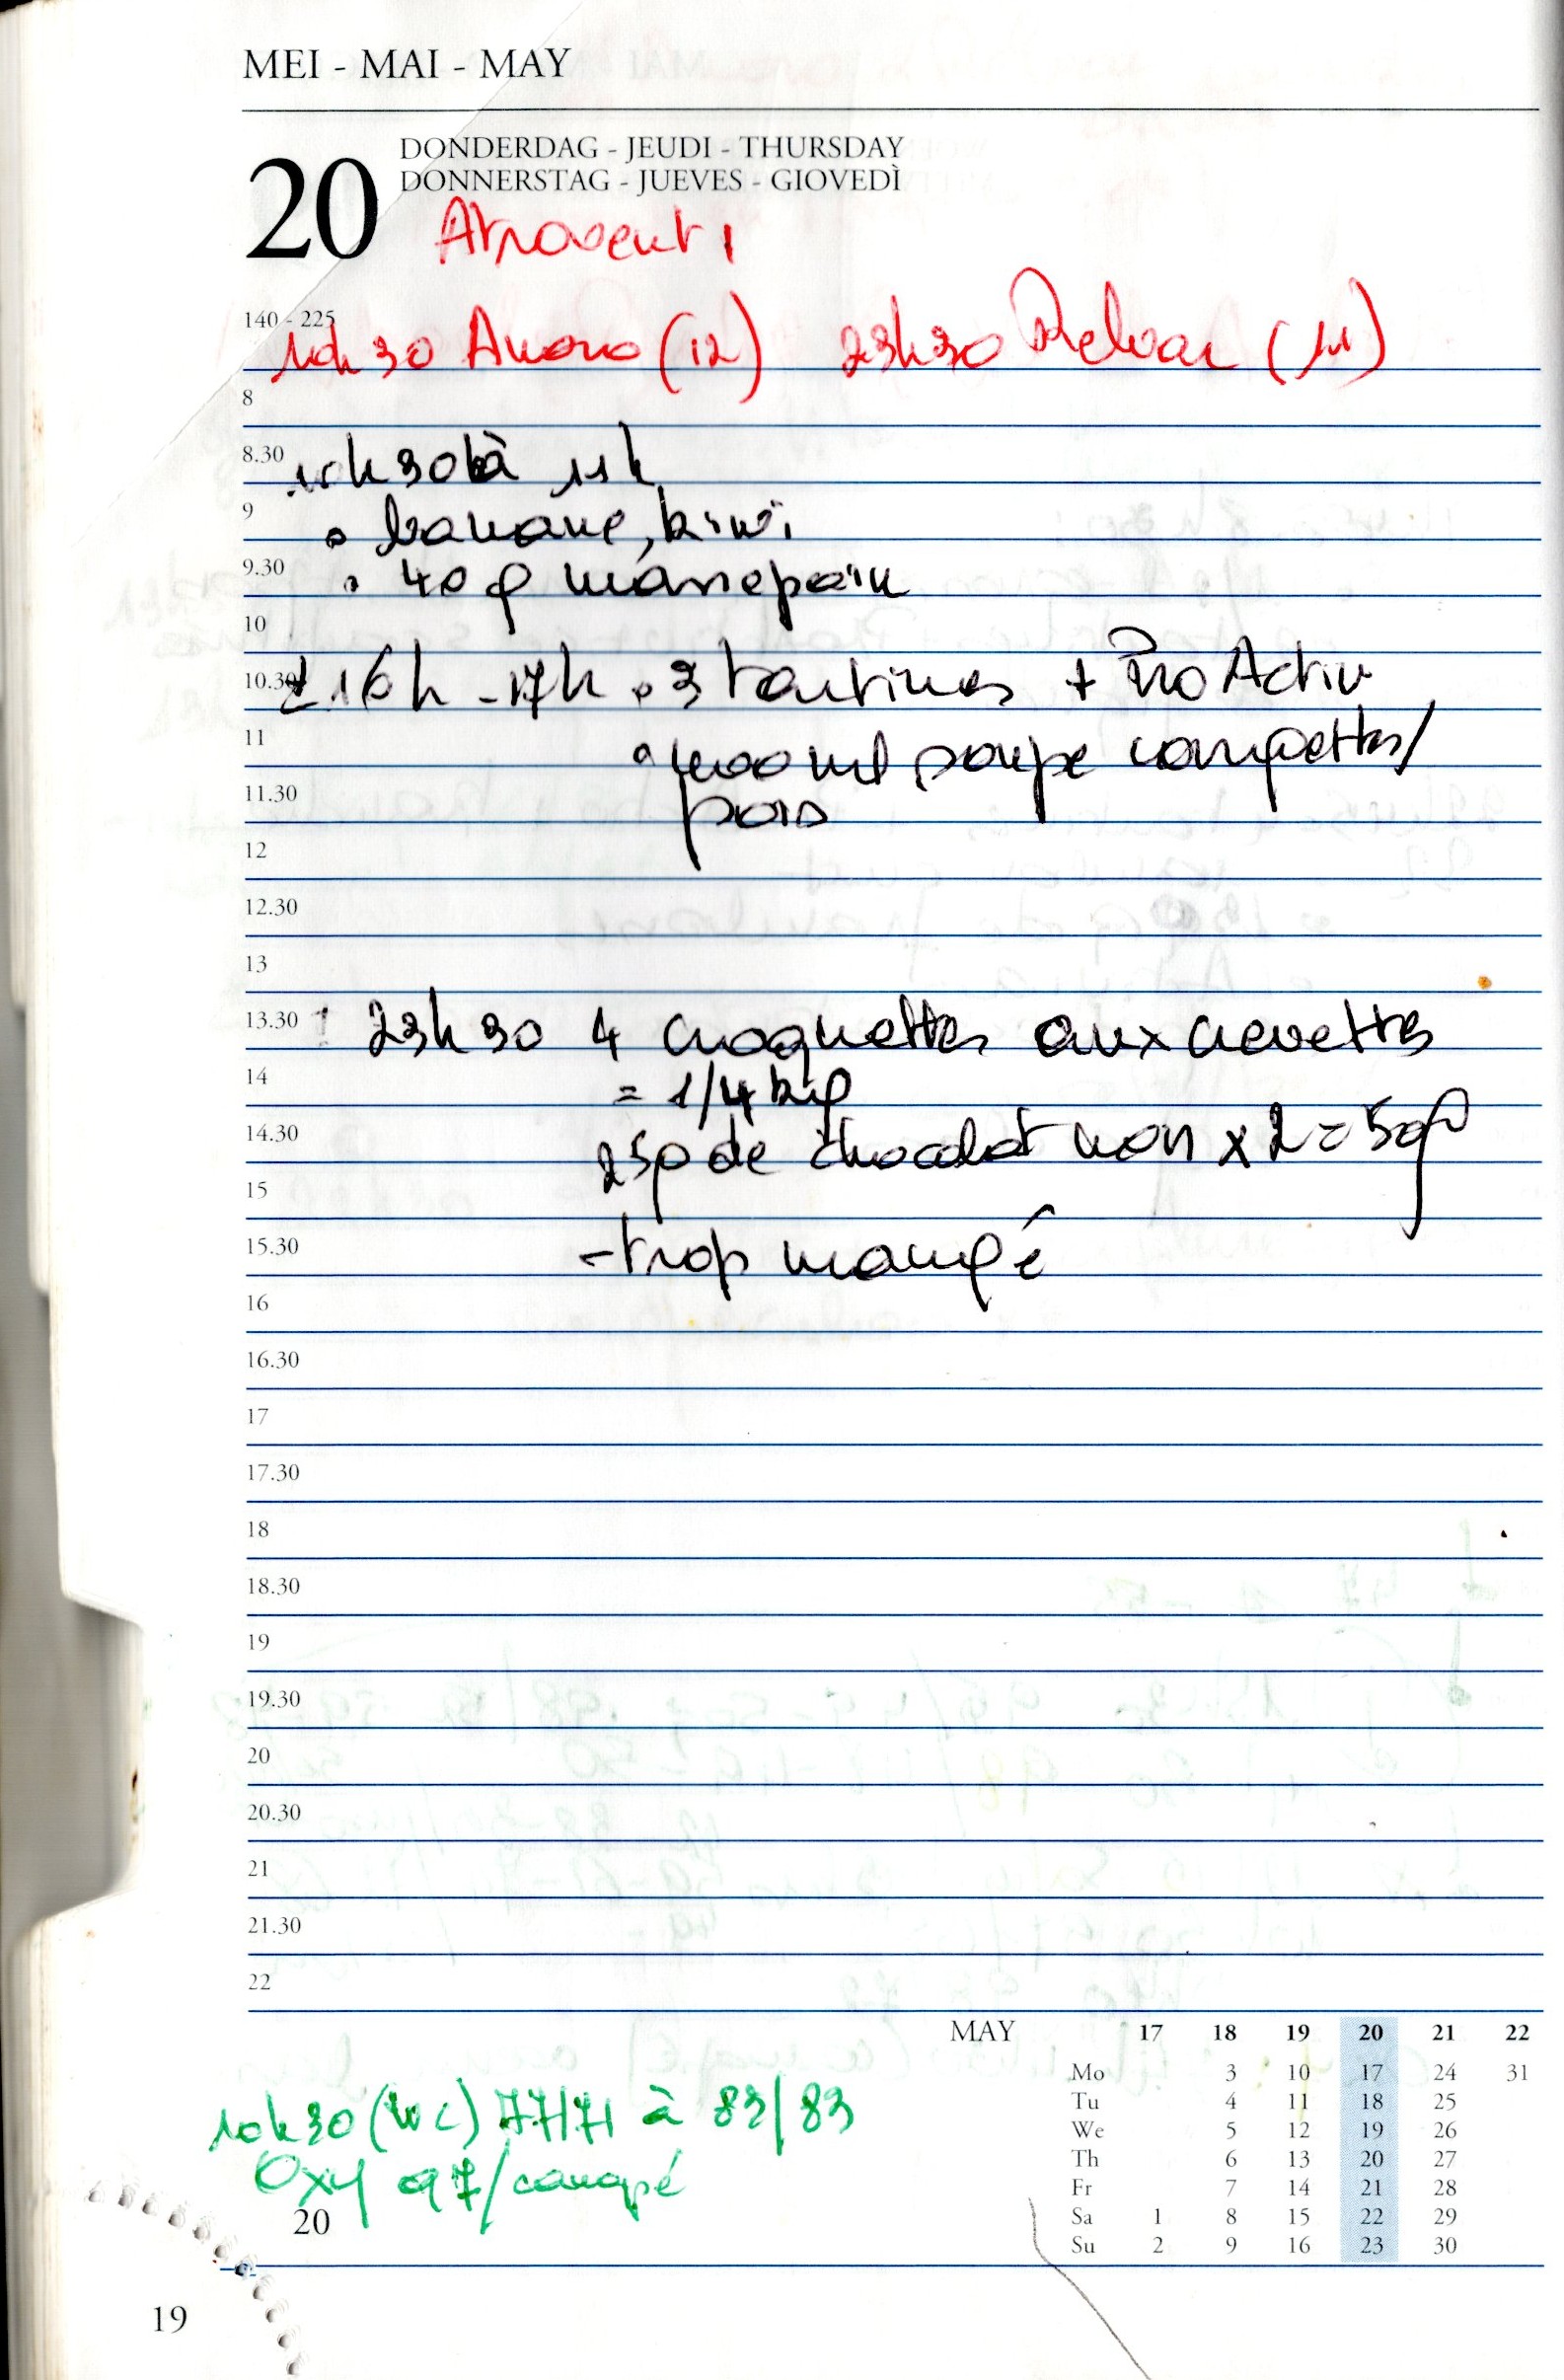 MEI - MAI - MAY
20
DONDERDAG - JEUDI - THURSDAY
DONNERSTAG - JUEVES - GIOVEDÌ
Atrovent 1
140 - 225
10h30 Anoro (12) 23h30 Relvar (11)
8
8.30
10h30 à 11h
9
• banane, kiwi
9.30
• 40 g massepain
10
10.30
± 16h - 17h • 3 tartines + ProActiv
11
• 400 ml soupe courgettes/
11.30
pois
12
12.30
13
13.30
23h30 4 croquettes aux crevettes
14
= 1/4 kg
14.30
25g de chocolat noir x 2 = 50g
15
15.30
- trop mangé
16
16.30
17
17.30
18
18.30
19
19.30
20
20.30
21
21.30
22
MAY 17 18 19 20 21 22
Mo 3 10 17 24 31
Tu 4 11 18 25
We 5 12 19 26
Th 6 13 20 27
Fr 7 14 21 28
Sa 1 8 15 22 29
Su 2 9 16 23 30
10h30 (WC) 77/71 à 83/83
Oxy 97/canapé
20
19